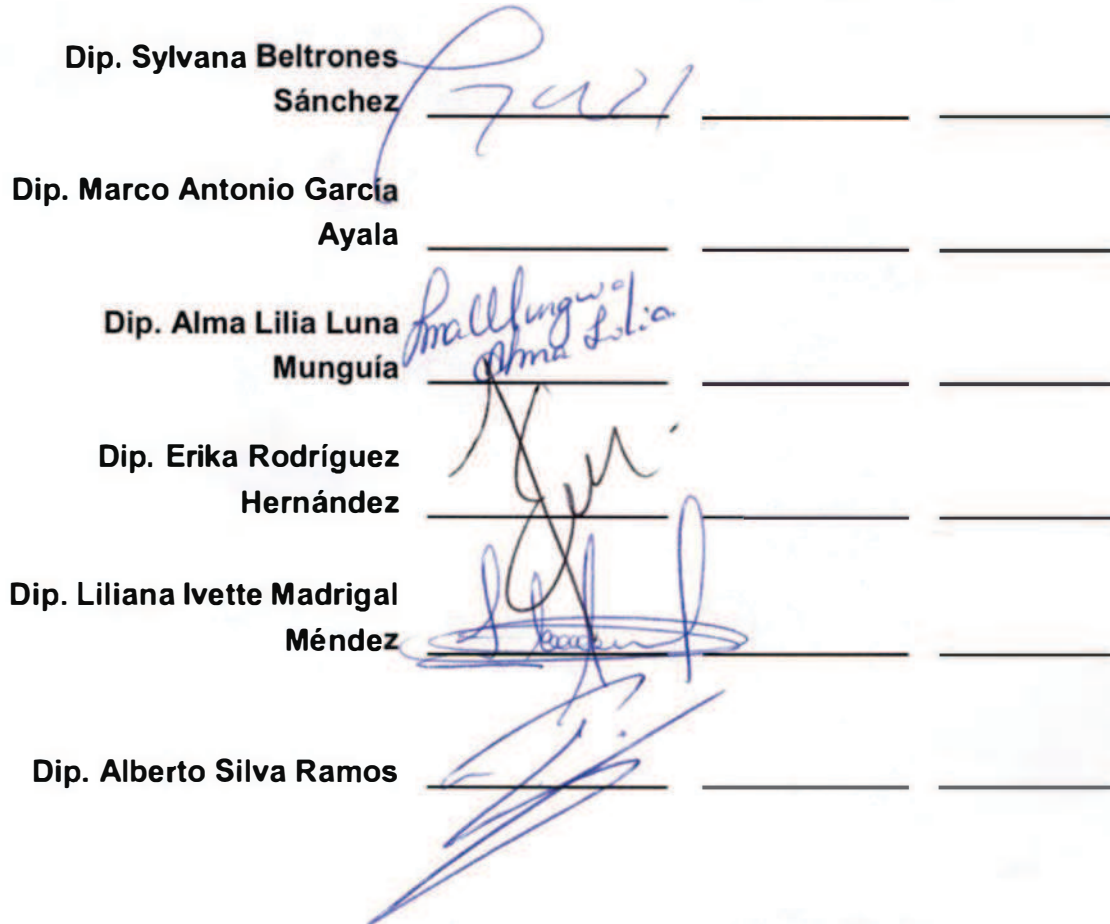 Dip. Sylvana Beltrones
Sánchez
Dip. Marco Antonio García
Ayala
Dip. Alma Lilia Luna
Munguía
Alma Lilia
Dip. Erika Rodríguez
Hernández
Dip. Liliana Ivette Madrigal
Méndez
Dip. Alberto Silva Ramos